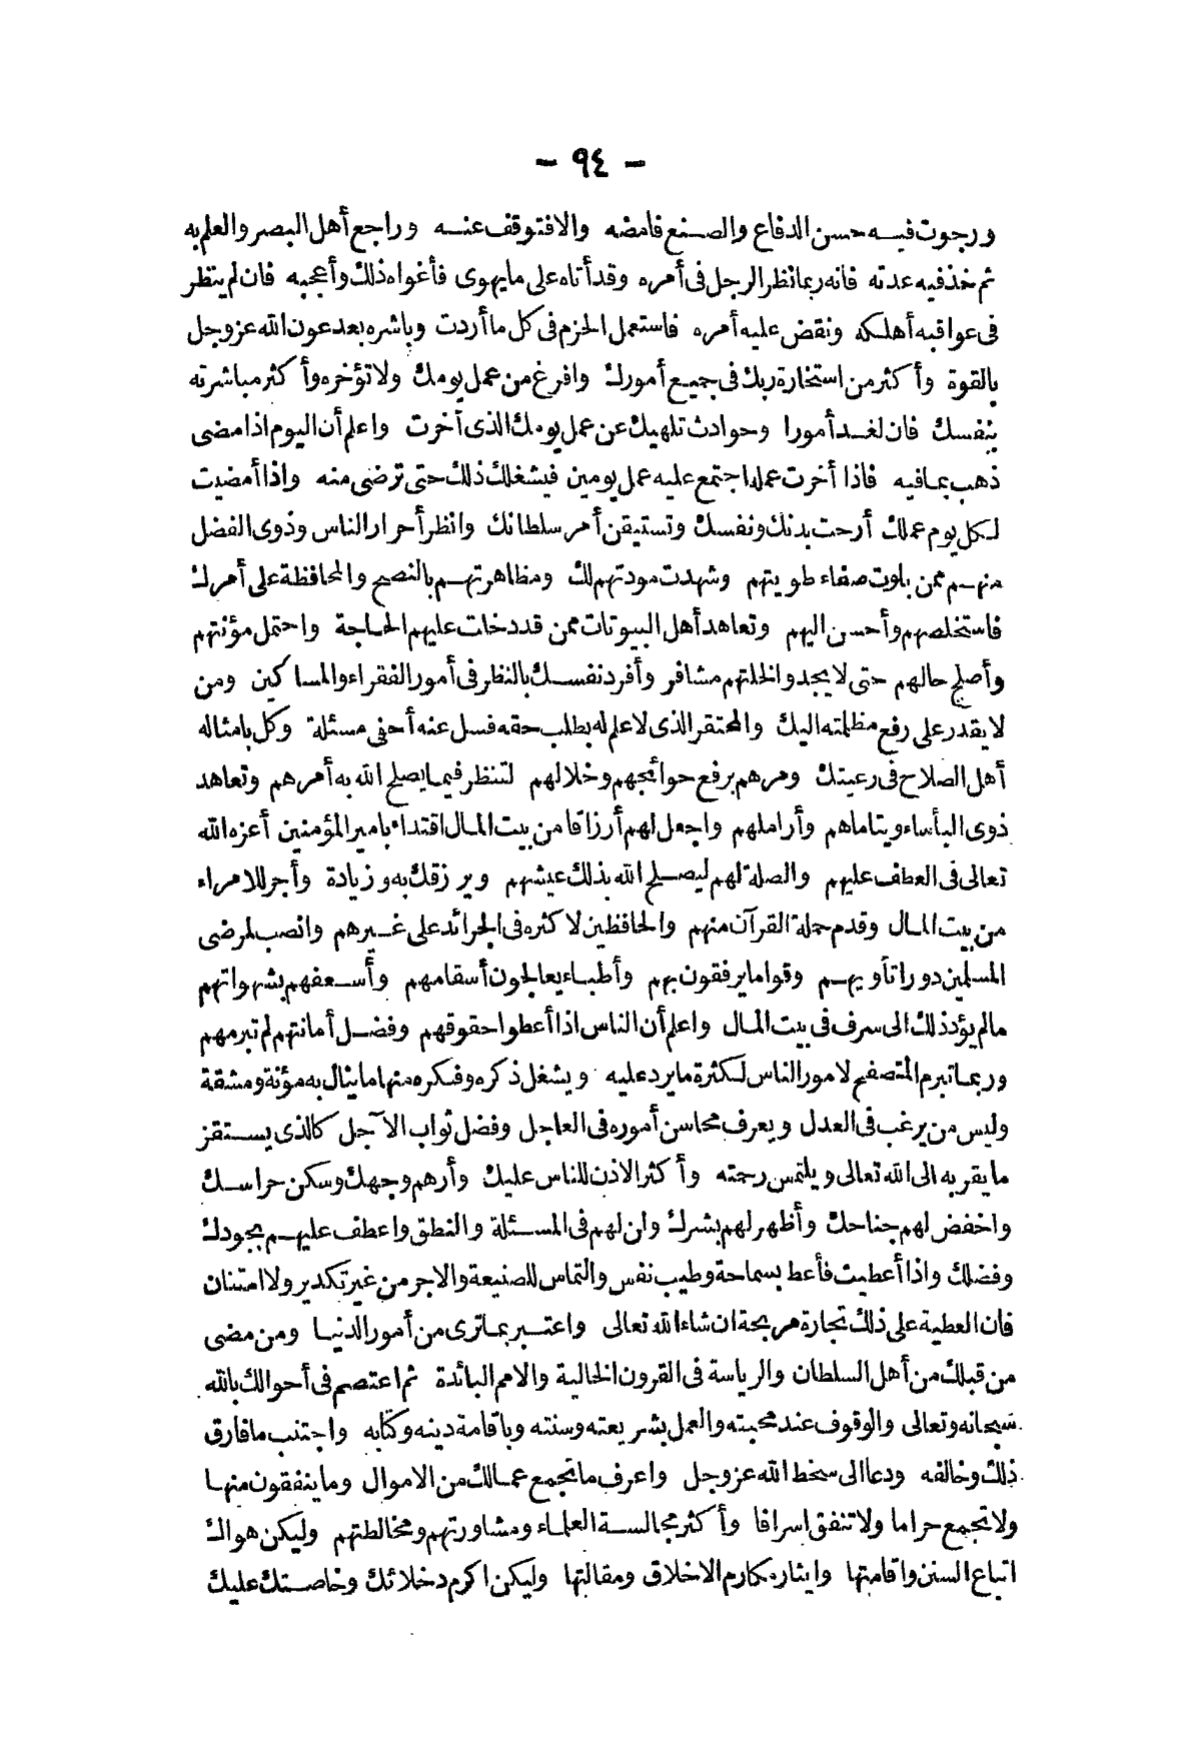 - ٩٤ -
ورجوت فيه حسن الدفاع والصنع فامضه والا فتوقف عنه وراجع أهل البصر والعلم به
ثم خذ فيه عدته فانه ربما نظر الرجل فى أمره وقد أتاه على ما يهوى فأغواه ذلك وأعجبه فان لم ينظر
فى عواقبه أهلكه ونقض عليه أمره فاستعمل الحزم فى كل ما أردت وباشره بعد عون الله عز وجل
بالقوة وأكثر من استخارة ربك فى جميع أمورك وافرغ من عمل يومك ولا تؤخره وأكثر مباشرته
بنفسك فان لغد أمورا وحوادث تلهيك عن عمل يومك الذى أخرت واعلم أن اليوم اذا مضى
ذهب بما فيه فاذا أخرت عمله اجتمع عليه عمل يومين فيشغلك ذلك حتى ترضى منه واذا أمضيت
لكل يوم عملك أرحت بدنك ونفسك وتستيقن أمر سلطانك وانظر أحرار الناس وذوى الفضل
منهم ممن بلوت صفاء طويتهم وشهدت مودتهم لك ومظاهرتهم بالنصح والمحافظة على أمرك
فاستخلصهم وأحسن اليهم وتعاهد أهل البيوتات ممن قد دخلت عليهم الحاجة واحتمل مؤنتهم
وأصلح حالهم حتى لا يجدوا لخلتهم مشافر وأفرد نفسك بالنظر فى أمور الفقراء والمساكين ومن
لا يقدر على رفع مظلمته اليك والمحتقر الذى لا علم له بطلب حقه فسل عنه أحفى مسئلة وكل بامثاله
أهل الصلاح فى رعيتك ومرهم برفع حوائجهم وخلالهم لتنظر فيما يصلح الله به أمرهم وتعاهد
ذوى البأساء ويتاماهم وأراملهم واجعل لهم أرزاقا من بيت المال اقتداء بامير المؤمنين أعزه الله
تعالى فى العطف عليهم والصلة لهم ليصلح الله بذلك عيشهم ويرزقك به وزيادة وأجر للامراء
من بيت المال وقدم حملة القرآن منهم والحافظين لاكثره فى الجرائد على غيرهم وانصب لمرضى
المسلمين دورا تأويهم وقواما يرفقون بهم وأطباء يعالجون أسقامهم وأسعفهم بشهواتهم
مالم يؤد ذلك الى سرف فى بيت المال واعلم أن الناس اذا أعطوا حقوقهم وفضل أمانتهم لم تبرمهم
وربما تبرم المتصفح لامور الناس لكثرة ما يرد عليه ويشغل ذكره وفكره منها ما ينال به مؤنة ومشقة
وليس من يرغب فى العدل ويعرف محاسن أموره فى العاجل وفضل ثواب الآجل كالذى يستقز
ما يقربه الى الله تعالى ويلتمس رحمته وأكثر الاذن للناس عليك وأرهم وجهك وسكن حراسك
واخفض لهم جناحك وأظهر لهم بشرك ولن لهم فى المسئلة والنطق واعطف عليهم بجودك
وفضلك واذا أعطيت فأعط بسماحة وطيب نفس والتماس للصنيعة والاجر من غير تكدير ولا امتنان
فان العطية على ذلك تجارة مربحة ان شاء الله تعالى واعتبر بما ترى من أمور الدنيا ومن مضى
من قبلك من أهل السلطان والرياسة فى القرون الخالية والامم البائدة ثم اعتصم فى أحوالك بالله
سبحانه وتعالى والوقوف عند محبته والعمل بشريعته وسنته وباقامة دينه وكتابه واجتنب ما فارق
ذلك وخالفه ودعا الى سخط الله عز وجل واعرف ما تجمع عمالك من الاموال وما ينفقون منها
ولا تجمع حراما ولا تنفق اسرافا وأكثر مجالسة العلماء ومشاورتهم ومخالطتهم وليكن هواك
اتباع السنن واقامتها وايثار مكارم الاخلاق ومقالتها وليكن اكرم دخلائك وخاصتك عليك